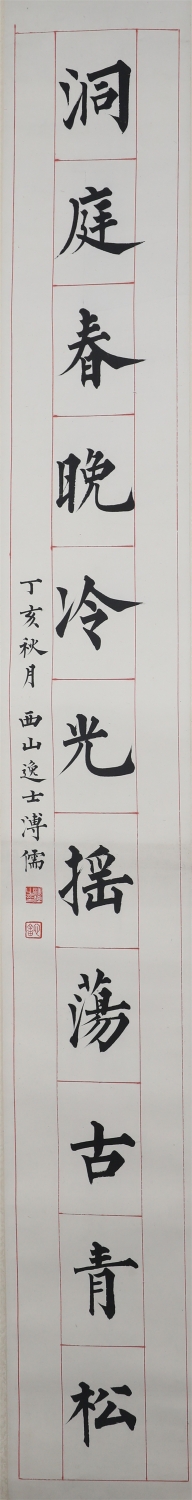 洞庭春晚冷光摇蕩古青松
丁亥秋月 西山逸士溥儒